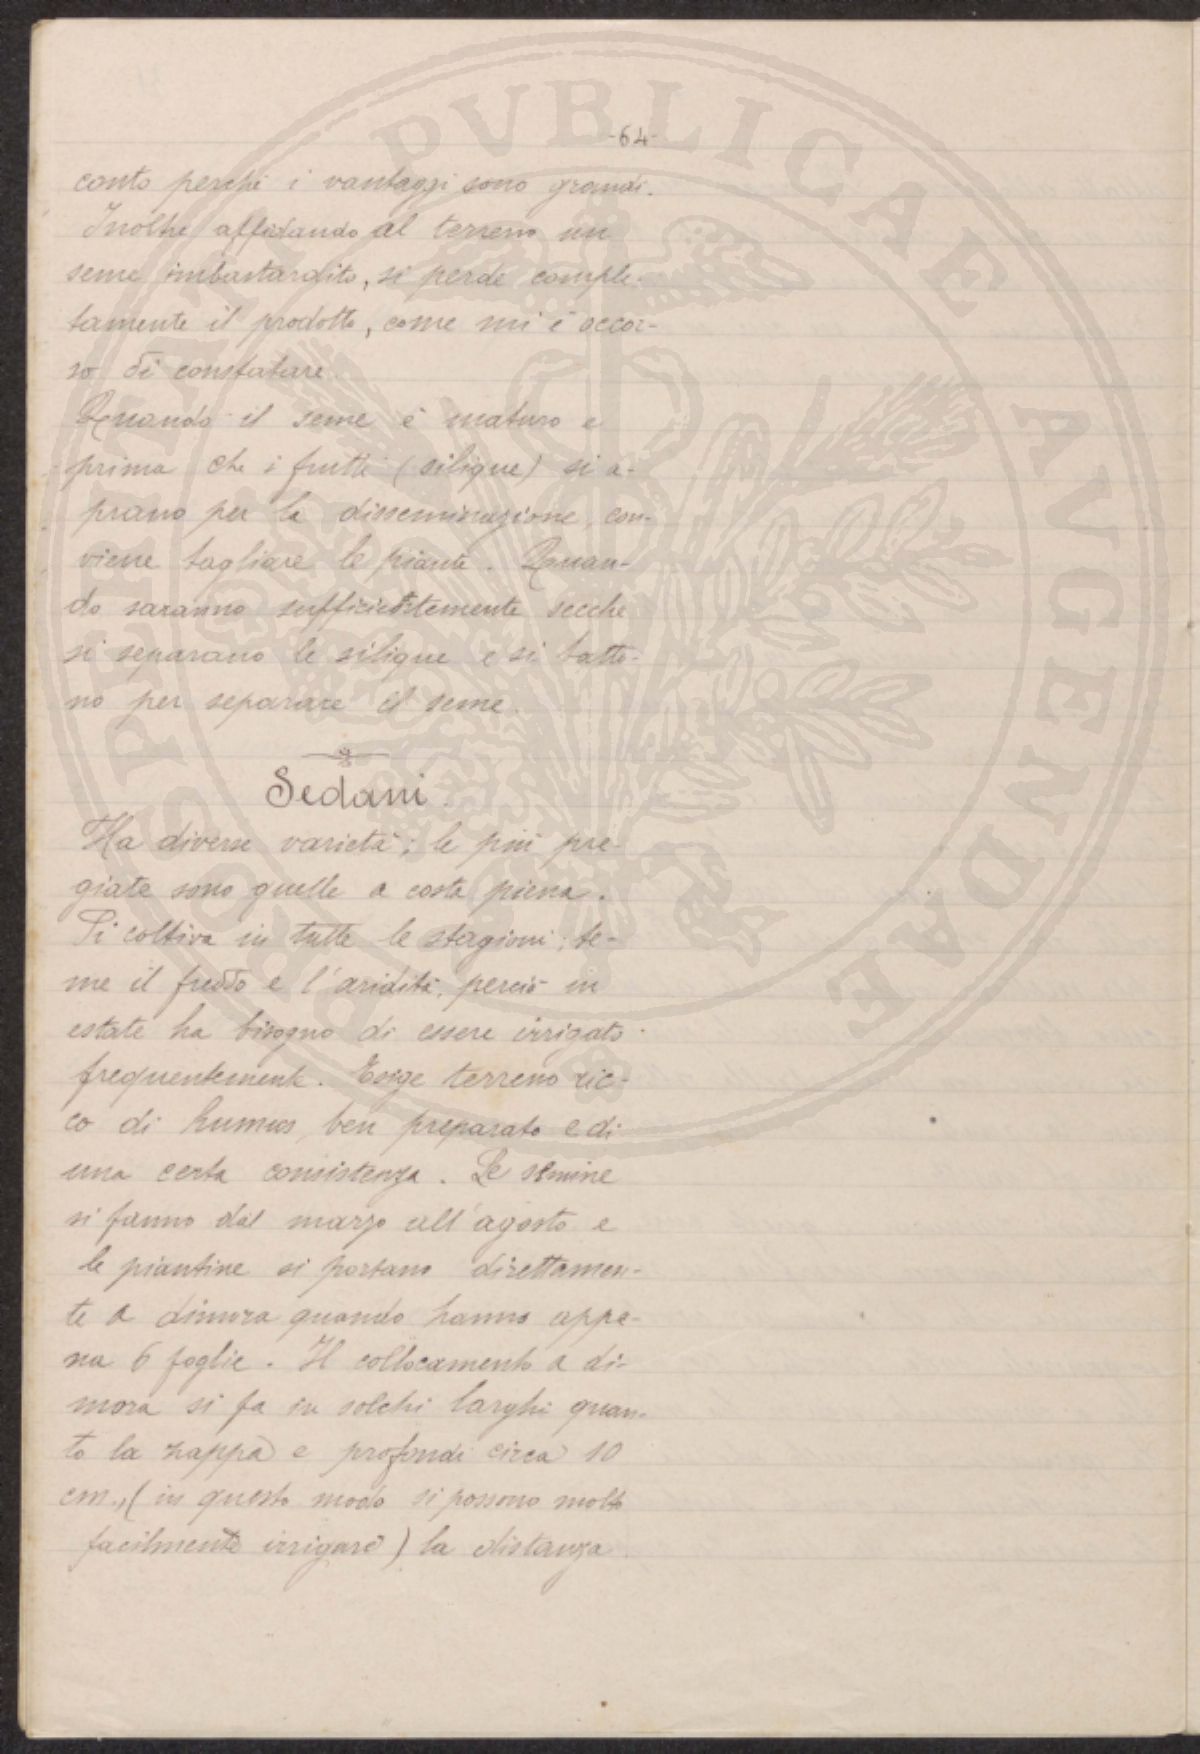 -64-
conto perchè i vantaggi sono grandi.
Inoltre affidando al terreno un
seme imbastardito, si perde comple-
tamente il prodotto, come mi è occor-
so di constatare.
Quando il seme è maturo e
prima che i frutti (silique) si a-
prano per la disseminazione, con-
viene tagliare le piante. Quan-
do saranno sufficientemente secche
si separano le silique e si batto-
no per separare il seme.
Sedani
Ha diverse varietà; le più pre-
giate sono quelle a costa piena.
Si coltiva in tutte le stagioni; te-
me il freddo e l'aridità, perciò in
estate ha bisogno di essere irrigato
frequentemente. Esige terreno ric-
co di humus, ben preparato e di
una certa consistenza. Le semine
si fanno dal marzo all'agosto e
le piantine si portano direttamen-
te a dimora quando hanno appe-
na 6 foglie. Il collocamento a di-
mora si fa in solchi larghi quan-
to la zappa e profondi circa 10
cm., (in questo modo si possono molto
facilmente irrigare) la distanza
PROSPERITATI PVBLICAE AVGENDAE